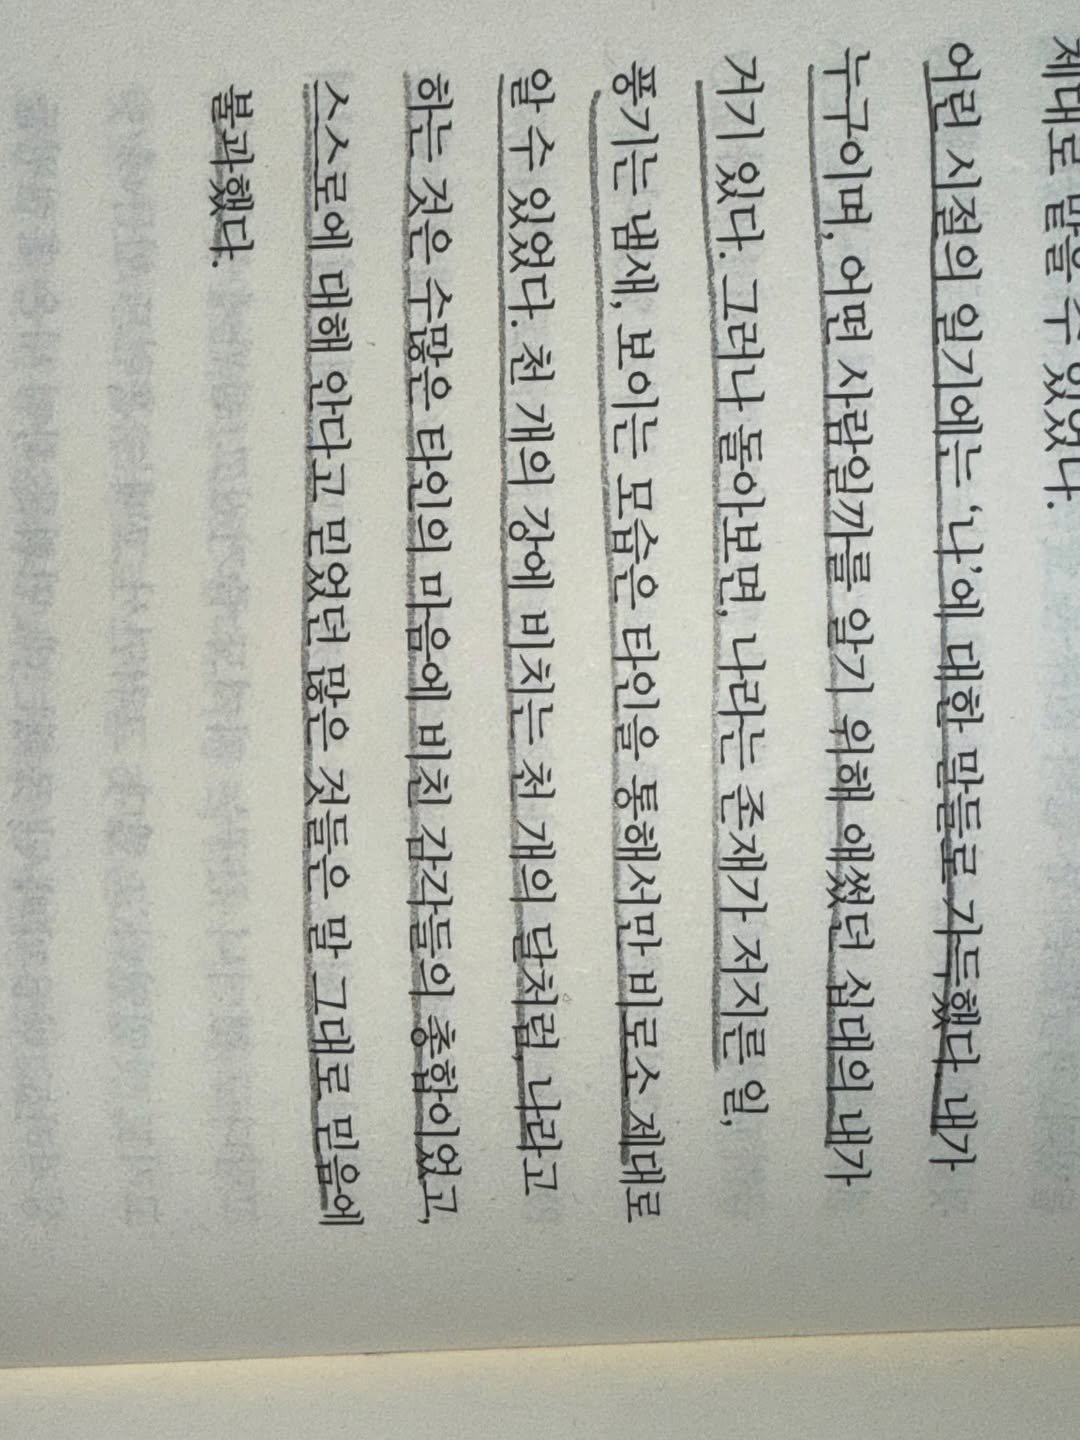 제대로 말할 수 있었다.
어린 시절의 일기에는 ‘나’에 대한 말들로 가득했다. 내가
누구이며, 어떤 사람일까를 알기 위해 애썼던 십대의 내가
거기 있다. 그러나 돌아보면, 나라는 존재가 저지른 일,
풍기는 냄새, 보이는 모습은 타인을 통해서만 비로소 제대로
알 수 있었다. 천 개의 강에 비치는 천 개의 달처럼, 나라고
하는 것은 수많은 타인의 마음에 비친 감각들의 총합이었고,
스스로에 대해 안다고 믿었던 많은 것들은 말 그대로 믿음에
불과했다.